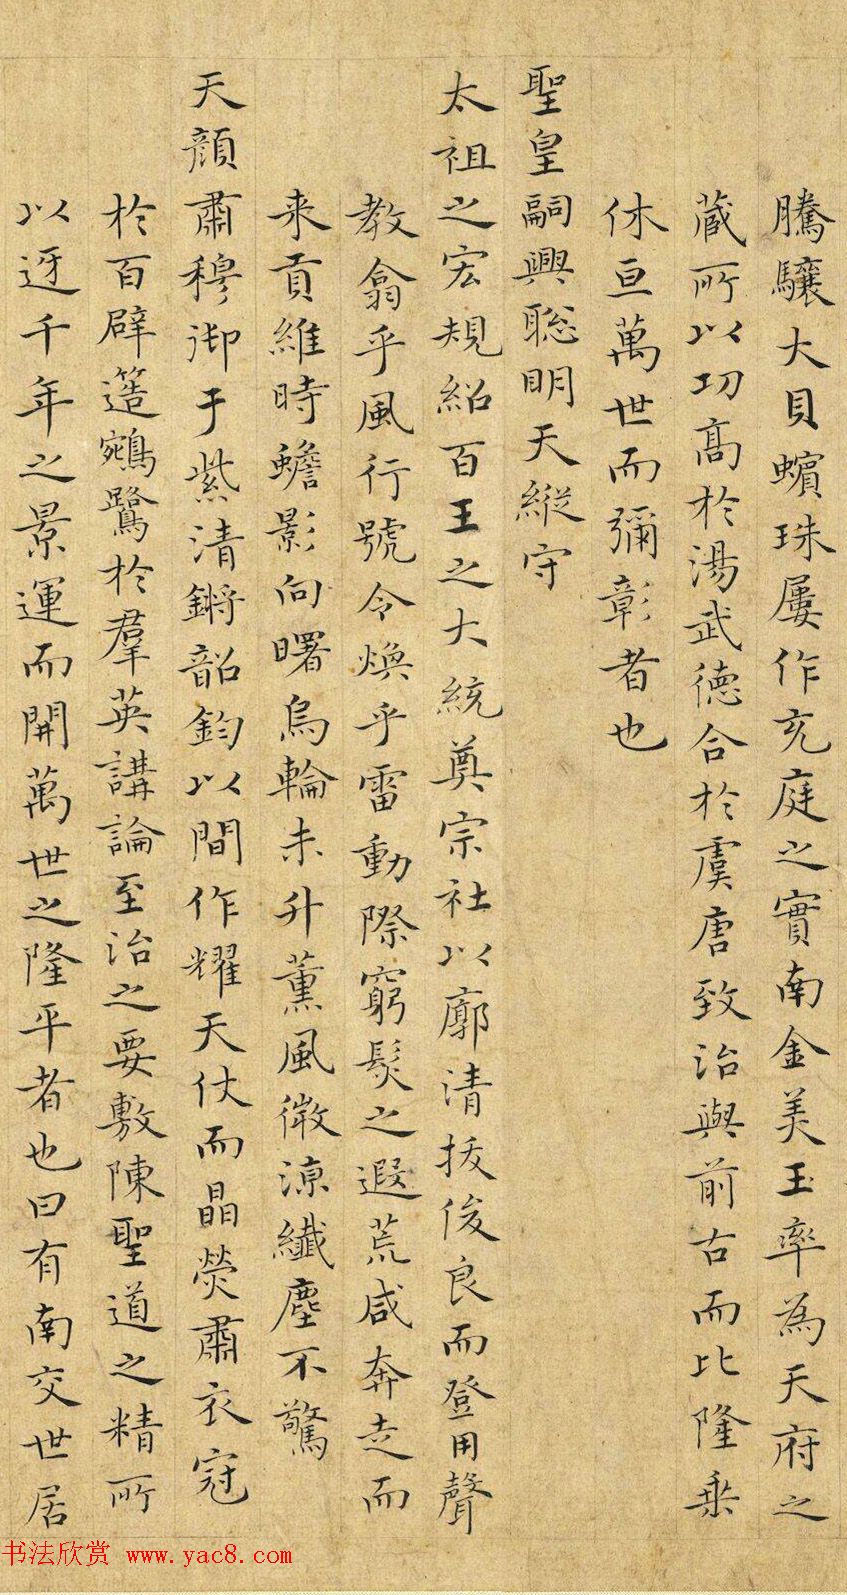 騰驤大貝蠙珠屢作充庭之實南金美玉率為天府之
蔵所以功高於湯武德合於虞唐致治與前古而比隆乗
休亘萬世而彌彰者也
聖皇嗣興聡明天縱守
太祖之宏規紹百王之大統奠宗社以廓清拔俊良而登用聲
教翕乎風行號令煥乎雷動際窮髪之遐荒咸奔走而
来貢維時蟾影向曙烏輪未升薫風微涼纎塵不驚
天顔肅穆御于紫清鏘韶鈞以間作耀天仗而晶熒肅衣冠
於百辟簉鵷鷺於羣英講論至治之要敷陳聖道之精所
以迓千年之景運而開萬世之隆平者也曰有南交世居
书法欣赏 www.yac8.com